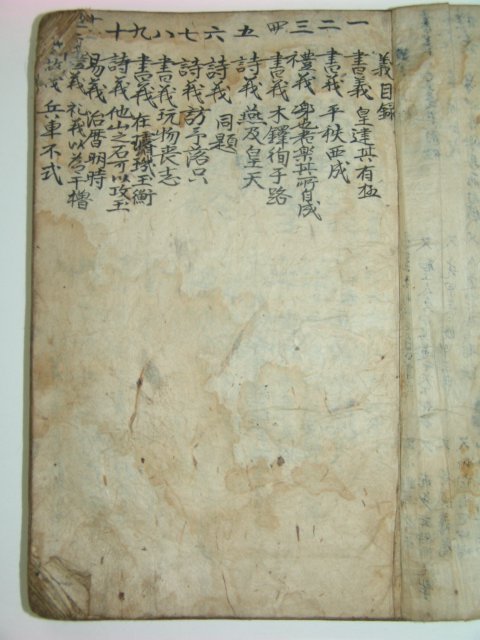 義目錄
一 書義 皇建其有極
二 書義 平秩西成
三 禮義 樂其所自成
四 書義 木鐸徇于路
五 詩義 燕及皇天
六 詩義 同題
七 詩義 訪予落只
八 書義 玩物喪志
九 書義 在璿璣玉衡
十 詩義 他山之石可以攻玉
十一 易義 治曆明時
義 礼義以爲干櫓
義 兵車不式